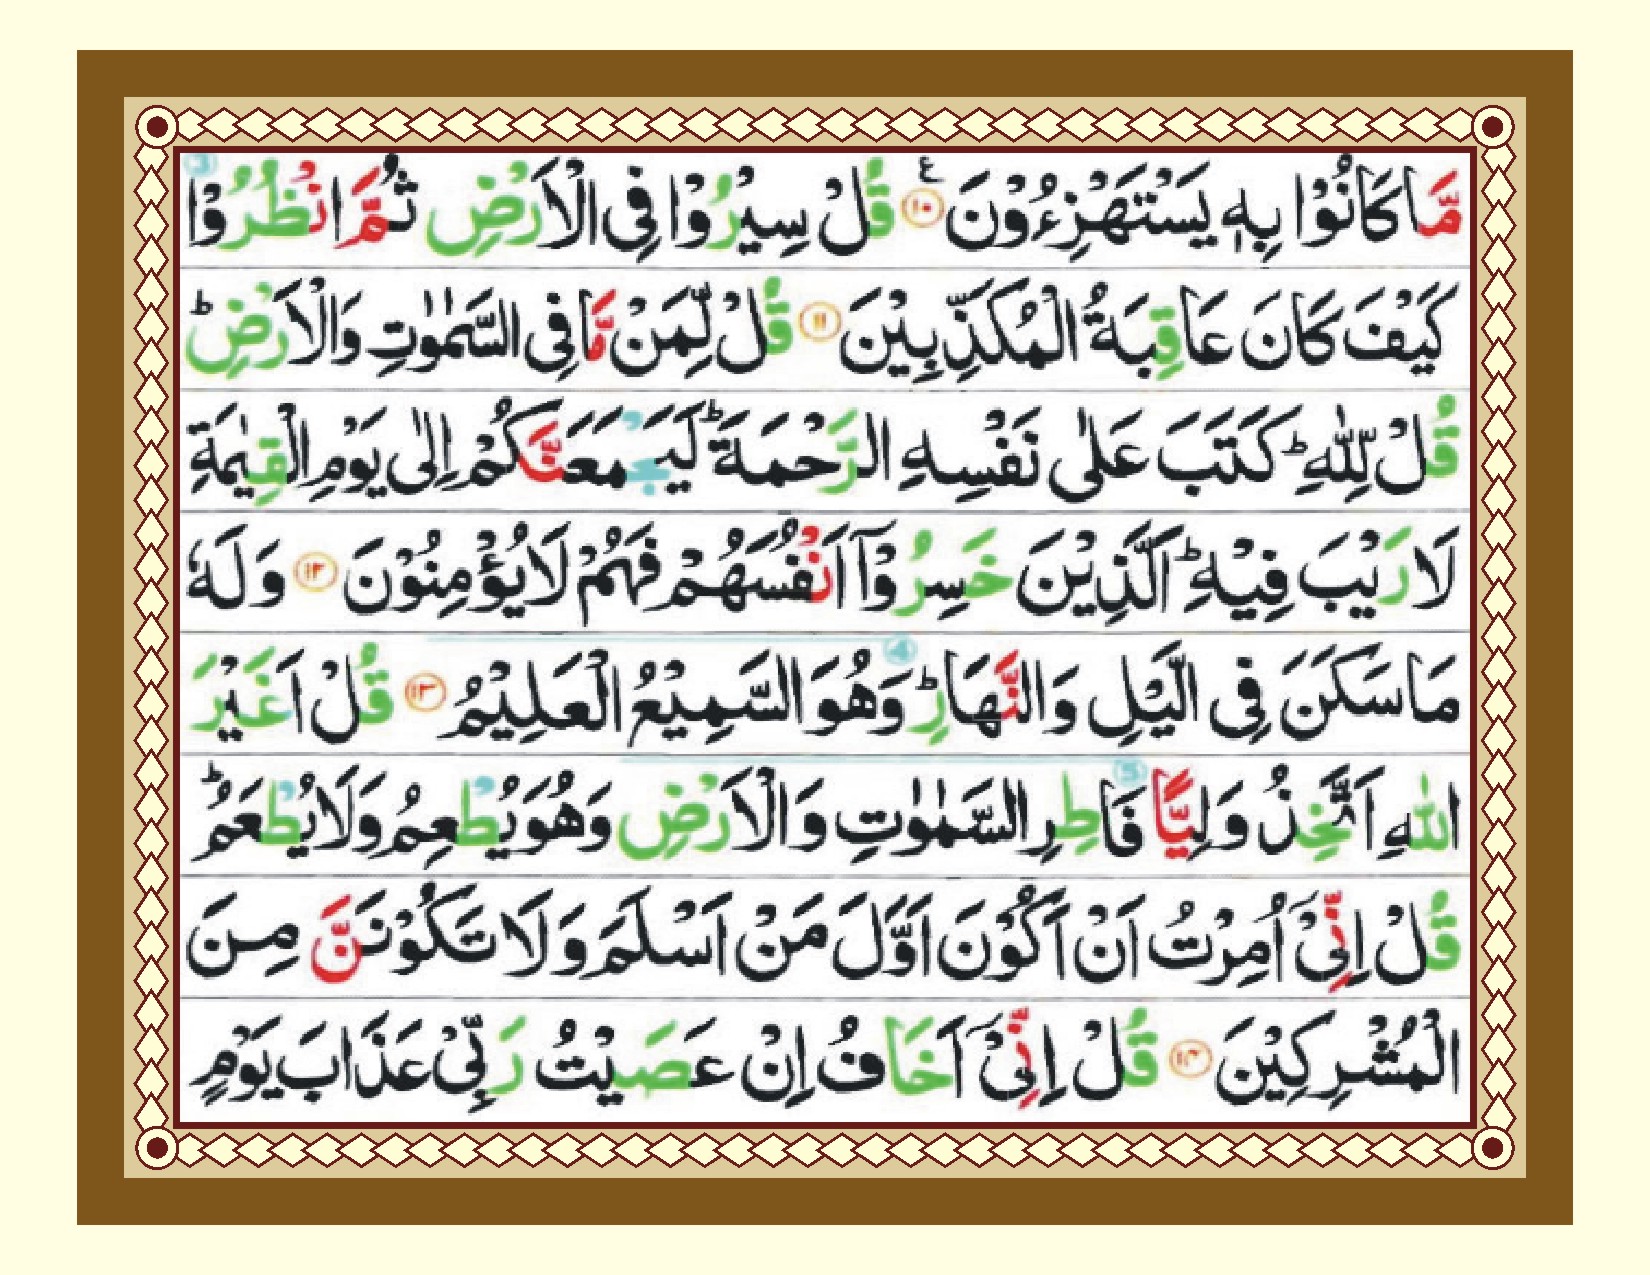 مَّا كَانُوْا بِهٖ يَسْتَهْزِءُوْنَ ۝۱۰ ع قُلْ سِيْرُوْا فِى الْاَرْضِ ثُمَّ انْظُرُوْا ③
كَيْفَ كَانَ عَاقِبَةُ الْمُكَذِّبِيْنَ ۝۱۱ قُلْ لِّمَنْ مَّا فِى السَّمٰوٰتِ وَالْاَرْضِ ؕ
قُلْ لِّلّٰهِ ؕ كَتَبَ عَلٰى نَفْسِهِ الرَّحْمَةَ ؕ لَيَجْمَعَنَّكُمْ اِلٰى يَوْمِ الْقِيٰمَةِ
لَا رَيْبَ فِيْهِ ؕ اَلَّذِيْنَ خَسِرُوْۤا اَنْفُسَهُمْ فَهُمْ لَا يُؤْمِنُوْنَ ۝۱۲ وَلَهٗ
مَا سَكَنَ فِى الَّيْلِ وَالنَّهَارِ ؕ ④ وَهُوَ السَّمِيْعُ الْعَلِيْمُ ۝۱۳ قُلْ اَغَيْرَ
اللّٰهِ اَتَّخِذُ وَلِيًّا ⑤ فَاطِرِ السَّمٰوٰتِ وَالْاَرْضِ وَهُوَ يُطْعِمُ وَلَا يُطْعَمُ ؕ
قُلْ اِنِّىْۤ اُمِرْتُ اَنْ اَكُوْنَ اَوَّلَ مَنْ اَسْلَمَ وَلَا تَكُوْنَنَّ مِنَ
الْمُشْرِكِيْنَ ۝۱۴ قُلْ اِنِّىْۤ اَخَافُ اِنْ عَصَيْتُ رَبِّىْ عَذَابَ يَوْمٍ